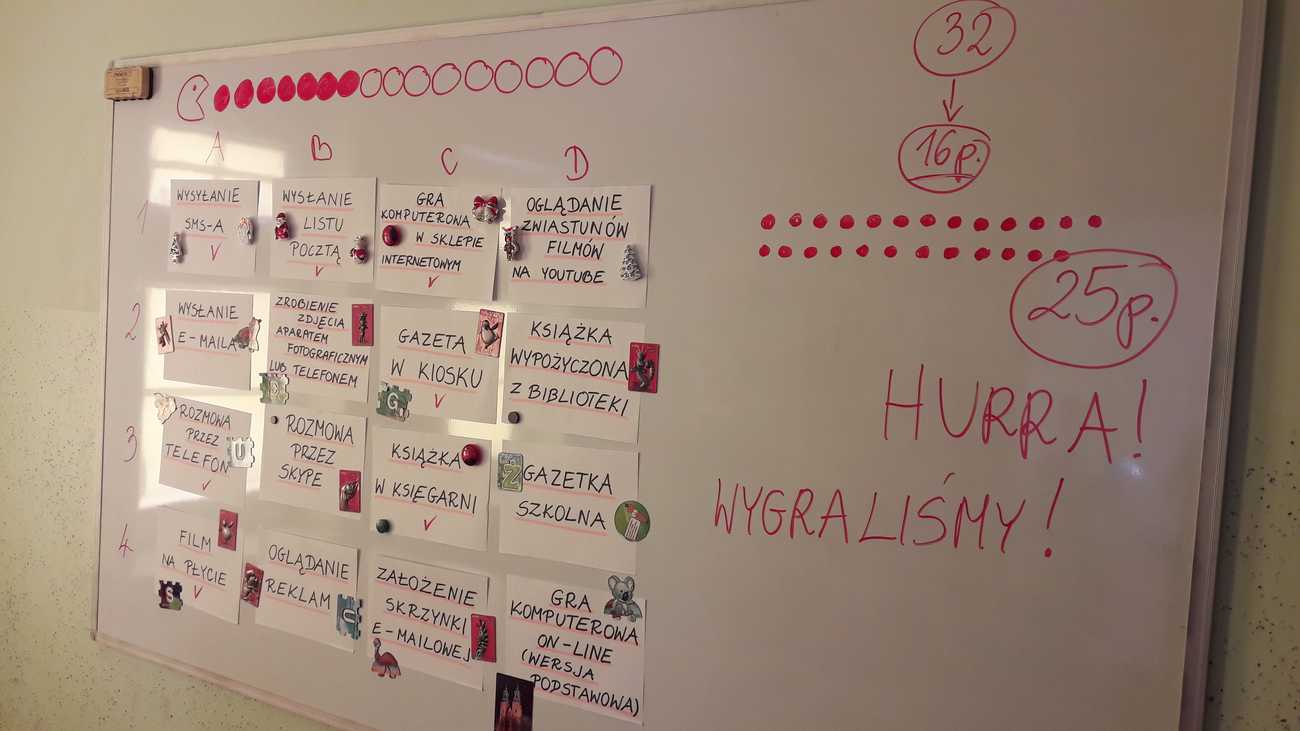 32
16p.
A B C D
1
WYSYŁANIE
SMS-A
WYSŁANIE
LISTU
POCZTĄ
GRA
KOMPUTEROWA
W SKLEPIE
INTERNETOWYM
OGLĄDANIE
ZWIASTUNÓW
FILMÓW
NA YOUTUBE
2
WYSŁANIE
E-MAILA
ZROBIENIE
ZDJĘCIA
APARATEM
FOTOGRAFICZNYM
LUB TELEFONEM
GAZETA
W KIOSKU
G
KSIĄŻKA
WYPOŻYCZONA
Z BIBLIOTEKI
3
ROZMOWA
PRZEZ
TELEFON
U
ROZMOWA
PRZEZ
SKYPE
KSIĄŻKA
W KSIĘGARNI
Ż
GAZETKA
SZKOLNA
4
FILM
NA PŁYCIE
S
OGLĄDANIE
REKLAM
ZAŁOŻENIE
SKRZYNKI
E-MAILOWEJ
GRA
KOMPUTEROWA
ON-LINE
(WERSJA
PODSTAWOWA)
25p.
HURRA!
WYGRALIŚMY!